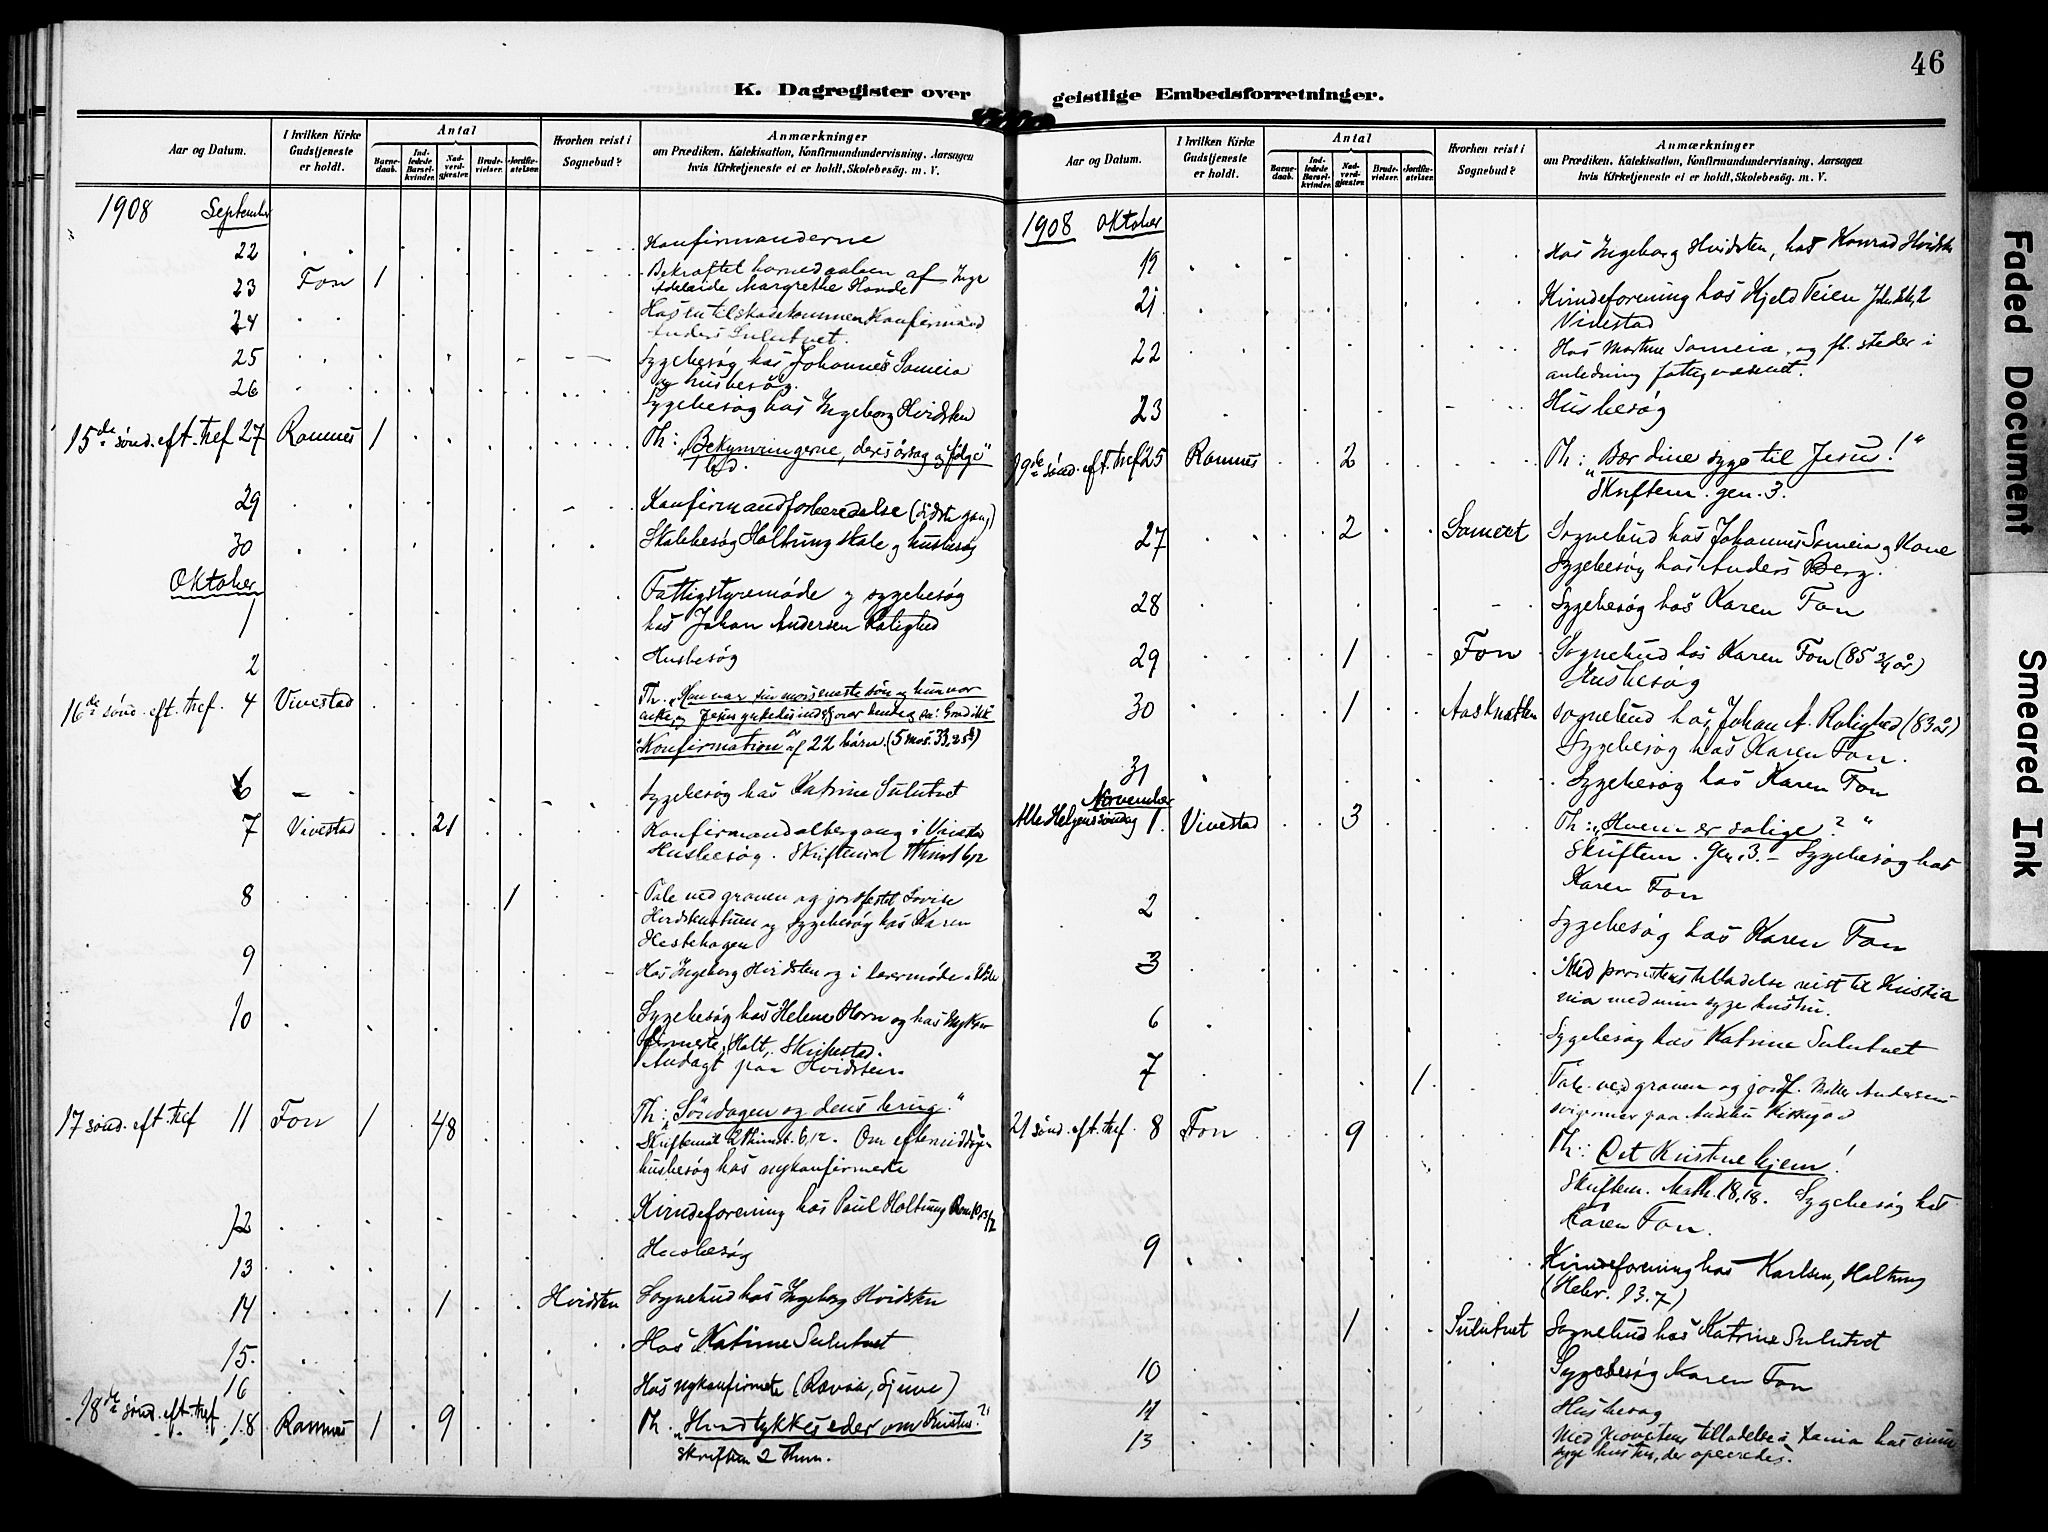 46
K. Dagregister over geistlige Embedsforretninger.
Aar og Datum.
I hvilken Kirke Gudstjeneste er holdt.
Antal
Barne-daab.
Ind-ledede Barsel-kvinder.
Nad-verd-gjester.
Brude-vielser.
Jordfæ-stelser.
Hvorhen reist i Sognebud?
Anmærkninger
om Prædiken, Katekisation, Konfirmandundervisning, Aarsagen
hvis Kirketjeneste ei er holdt, Skolebesøg. m. V.
1908 September
22 Konfirmanderne
23 Fon 1 Bekræftet barnedaaben af
Adelaide Margrethe Hande
24 Hos en tilskadekommen Konfirmand
Anders Sulutvet.
25 Sygebesøg hos Johannes Someia
og husbesøg.
26 Sygebesøg hos Ingeborg Hvidsten
15de sønd. eft. tref 27 Ramnes 1 Th: „Bekymringerne, deres årsag og følge"
29 Konfirmandforberedelse (sidste gang)
30 Skolebesøg Holtung skole og husbesøg
Oktober
1 Fattigstyremøde og sygebesøg
hos Johan Andersen Rolighed
2 Husbesøg
16de sønd. eft. tref. 4 Vivestad Th. „Han var sin mors eneste søn og hun var
enke, og
Konfirmation af 22 børn. (5 mos. 33, 25)
6 Sygebesøg hos Katrine Sulutvet
7 Vivestad 21 Konfirmandaltergang i Vivestad
Husbesøg. Skriftemål 1 Thim 6,12
8 1 Tale ved graven og jordfestet Lovise
og Sygebesøg hos Karen
Hestehagen
9 Hos Ingeborg Hvidsten og i lærermøde
10 Sygebesøg hos Helene Horn og hos nykon
firmerte, Holt,
Andagt paa Hvidsten.
17 sønd. eft. tref 11 Fon 1 48 Th: „Søndagen og dens brug."
Skriftemål 1 Thimot. 6,12. Om eftermiddagen
husbesøg hos nykonfirmerte
12 Kvindeforening hos Paul Holtung Rom 10, 13
13 Husbesøg
14 1 Hvidsten Sognebud hos Ingeborg Hvidsten
15. Hos Katrine Sulutvet
16 Hos nykonfirmerte (Ravaa, Sjuve)
18de sønd. eft. tref. 18 Ramnes 1 9 Th. „Hvad tykkes eder om Kristus?"
Skriftem 2 Thim.
Aar og Datum.
I hvilken Kirke Gudstjeneste er holdt.
Antal
Barne-daab.
Ind-ledede Barsel-kvinder.
Nad-verd-gjester.
Brude-vielser.
Jordfæ-stelser.
Hvorhen reist i Sognebud?
Anmærkninger
om Prædiken, Katekisation, Konfirmandundervisning, Aarsagen
hvis Kirketjeneste ei er holdt, Skolebesøg. m. V.
1908 Oktober
19 Hos Ingeborg Hvidsten, hos Konrad Hvidsten
21 Kvindeforening hos Kjeld Teien
Vivestad
22 Hos Martine Someia og fl. steder i
anledning fattigvæsenet.
23 Husbesøg
19de sønd. eft. tref 25 Ramnes 2 Th: „Bær dine syge til Jesus!"
Skriftem. gen. 3.
27 2 Someet Sognebud hos Johannes Someia og Kone
Sygebesøg hos Anders Berg.
28 Sygebesøg hos Karen Fon
29 1 Fon Sognebud hos Karen Fon (85 3/4 år)
Husbesøg
30 1 Sognebud hos Johan A. Rolighed (83 år)
Sygebesøg hos Karen Fon.
31 Sygebesøg hos Karen Fon
November
Alle Helgens søndag 1. Vivestad 3 Th: „Hvem er salige?"
Skriftem. Gen. 3. – Sygebesøg hos
Karen Fon
2 Sygebesøg hos Karen Fon
3 Med provstens tilladelse reist til Kristia
nia med min syge hustru.
6 Sygebesøg hos Katrine Sulutvet
7 1 Tale ved graven og jordf. Andersens
svigermor paa
21 sønd. eft. tref. 8 Fon 9 Th: Det Kristne hjem!
Skriftem. Math. 18,18. Sygebesøg hos
Karen Fon.
9 Kvindeforening hos Karlsen, Holtung
(Hebr. 13.7)
1 Sulutvet Sognebud hos Katrine Sulutvet
10 Sygebesøg Karen Fon
11 Husbesøg
13 Med Provstens tilladelse i Xania hos min
syge hustru, der opereredes.
Faded Document
Smeared Ink